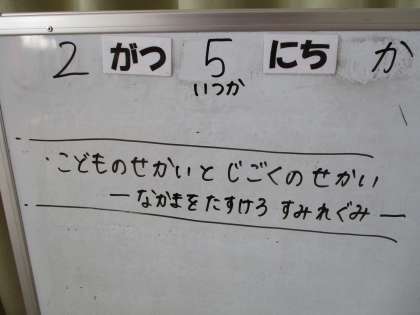 2 がつ 5 にち か
いつか
・こどものせかいとじごくのせかい
ーなかまをたすけろ すみれぐみー